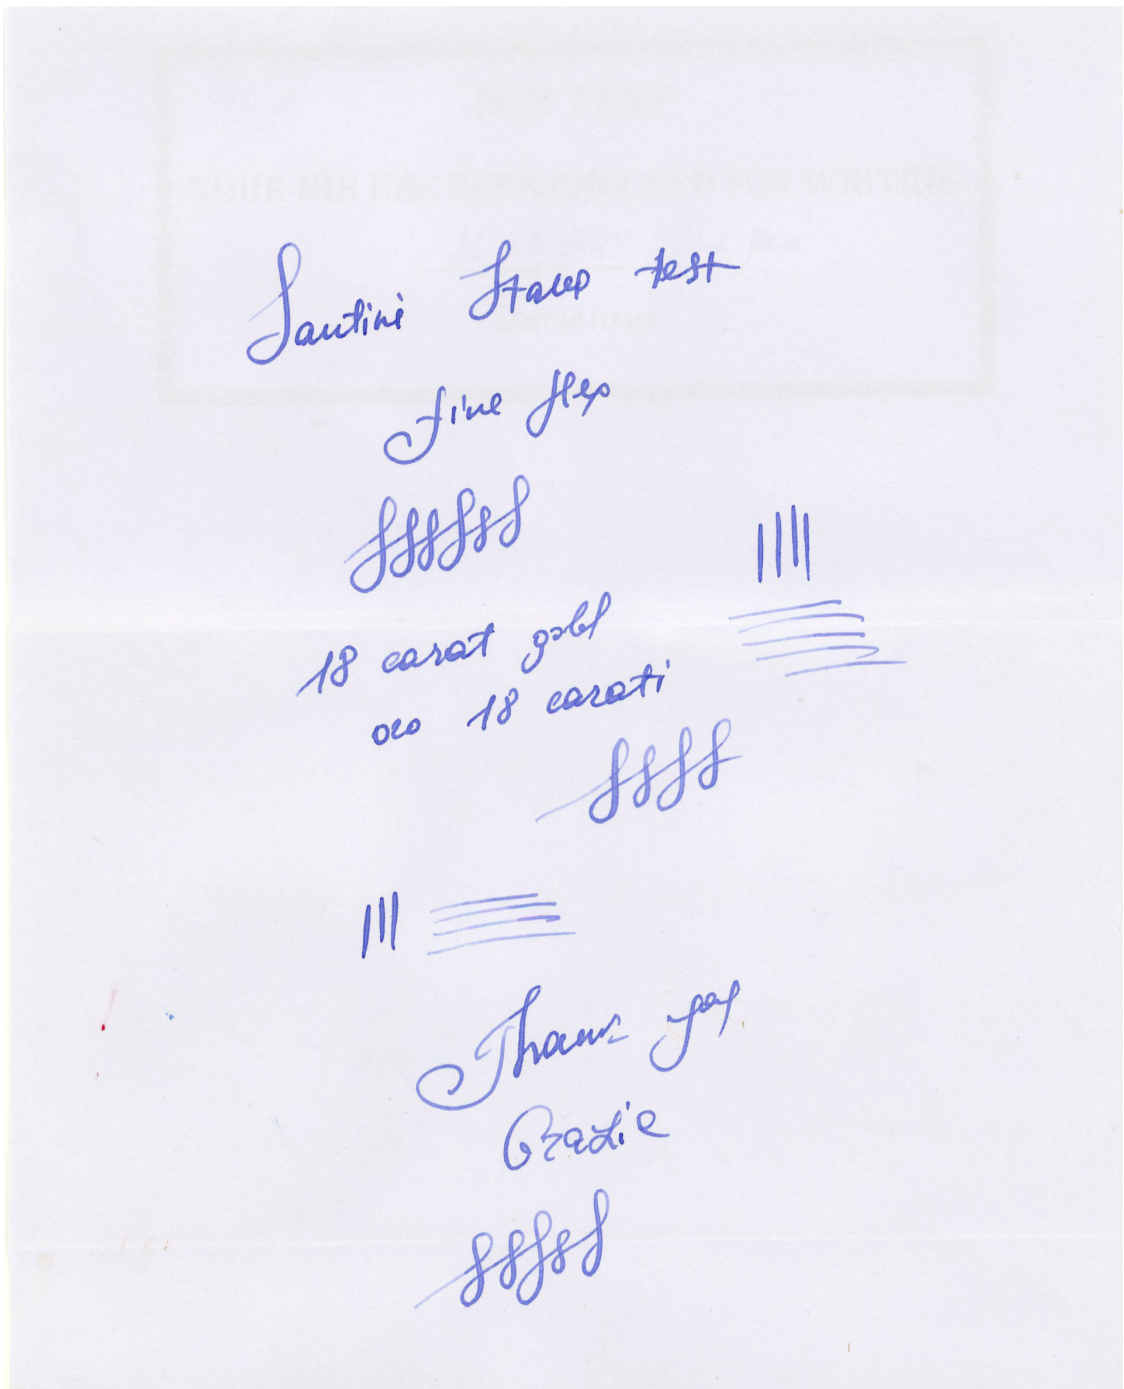 NIB TEST
YOUR NIB HAS BEEN CHECKED FOR WRITING
Santini Italy test
fine flex
18 carat gold
oro 18 carati
Thank you
Grazie